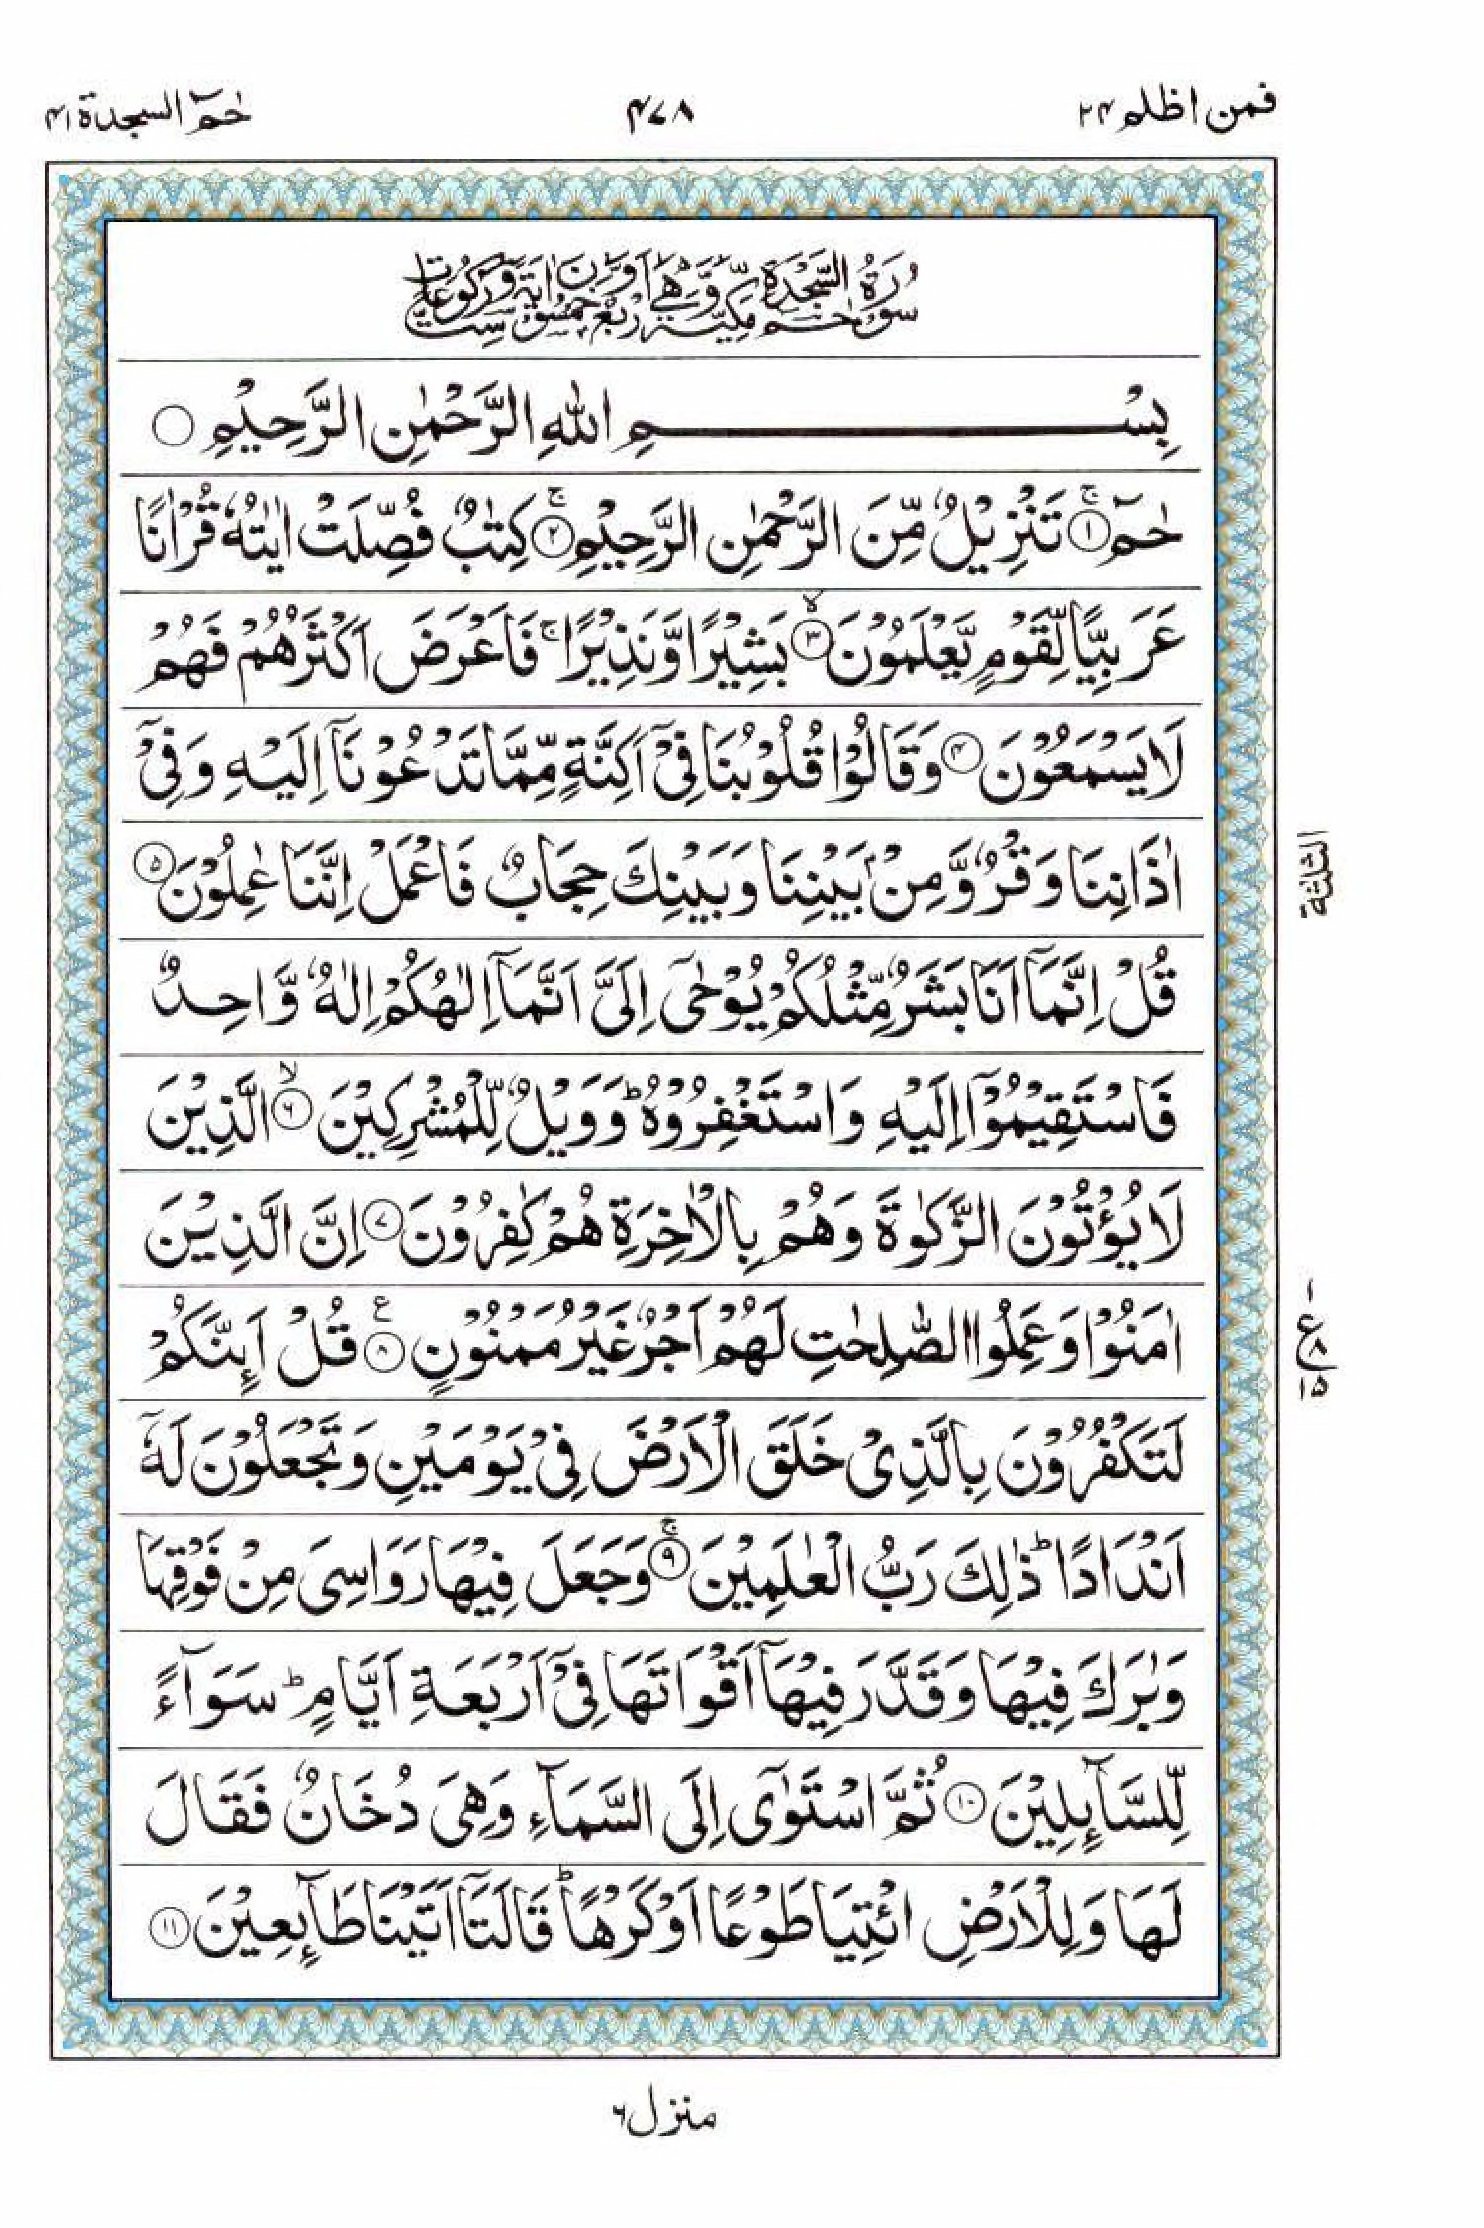 فمن اظلم ۲۴
۴۷۸
حٰمٓ السجدة ۴۱
سُوۡرَةُ حٰمٓ السَّجۡدَةِ مَكِّيَّةٌ وَّهِيَ اَرۡبَعٌ وَّخَمۡسُوۡنَ اٰيَةً وَّسِتُّ رُكُوۡعَاتٍ
بِسۡمِ اللّٰهِ الرَّحۡمٰنِ الرَّحِيۡمِ ○
حٰمٓ ۚ‏﴿۱﴾ تَنۡزِيۡلٌ مِّنَ الرَّحۡمٰنِ الرَّحِيۡمِ ۚ‏﴿۲﴾ كِتٰبٌ فُصِّلَتۡ اٰيٰتُهٗ قُرۡاٰنًا
عَرَبِيًّا لِّقَوۡمٍ يَّعۡلَمُوۡنَ ۙ‏﴿۳﴾ بَشِيۡرًا وَّنَذِيۡرًا ۚ فَاَعۡرَضَ اَكۡثَرُهُمۡ فَهُمۡ
لَا يَسۡمَعُوۡنَ ﴿۴﴾ وَقَالُوۡا قُلُوۡبُنَا فِىۡۤ اَكِنَّةٍ مِّمَّا تَدۡعُوۡنَاۤ اِلَيۡهِ وَفِىۡۤ
اٰذَانِنَا وَقۡرٌ وَّمِنۡۢ بَيۡنِنَا وَبَيۡنِكَ حِجَابٌ فَاعۡمَلۡ اِنَّنَا عٰمِلُوۡنَ ﴿۵﴾
قُلۡ اِنَّمَاۤ اَنَا بَشَرٌ مِّثۡلُكُمۡ يُوۡحٰٓى اِلَىَّ اَنَّمَاۤ اِلٰهُكُمۡ اِلٰهٌ وَّاحِدٌ
فَاسۡتَقِيۡمُوۡۤا اِلَيۡهِ وَاسۡتَغۡفِرُوۡهُ ؕ وَوَيۡلٌ لِّلۡمُشۡرِكِيۡنَ ۙ‏﴿۶﴾ الَّذِيۡنَ
لَا يُؤۡتُوۡنَ الزَّكٰوةَ وَهُمۡ بِالۡاٰخِرَةِ هُمۡ كٰفِرُوۡنَ ﴿۷﴾ اِنَّ الَّذِيۡنَ
اٰمَنُوۡا وَعَمِلُوا الصّٰلِحٰتِ لَهُمۡ اَجۡرٌ غَيۡرُ مَمۡنُوۡنٍ ﴿۸﴾ ع قُلۡ اَٮِٕنَّكُمۡ
لَتَكۡفُرُوۡنَ بِالَّذِىۡ خَلَقَ الۡاَرۡضَ فِىۡ يَوۡمَيۡنِ وَتَجۡعَلُوۡنَ لَهٗۤ
اَنۡدَادًا ؕ ذٰلِكَ رَبُّ الۡعٰلَمِيۡنَ ۚ‏﴿۹﴾ وَجَعَلَ فِيۡهَا رَوَاسِىَ مِنۡ فَوۡقِهَا
وَبٰرَكَ فِيۡهَا وَقَدَّرَ فِيۡهَاۤ اَقۡوَاتَهَا فِىۡۤ اَرۡبَعَةِ اَيَّامٍ ؕ سَوَآءً
لِّلسَّآٮِٕلِيۡنَ ﴿۱۰﴾ ثُمَّ اسۡتَوٰٓى اِلَى السَّمَآءِ وَهِىَ دُخَانٌ فَقَالَ
لَهَا وَلِلۡاَرۡضِ ائۡتِيَا طَوۡعًا اَوۡ كَرۡهًا ؕ قَالَتَاۤ اَتَيۡنَا طَآٮِٕعِيۡنَ ﴿۱۱﴾
الثلٰثة
۱
ع ۸
۱۵
منزل ۶